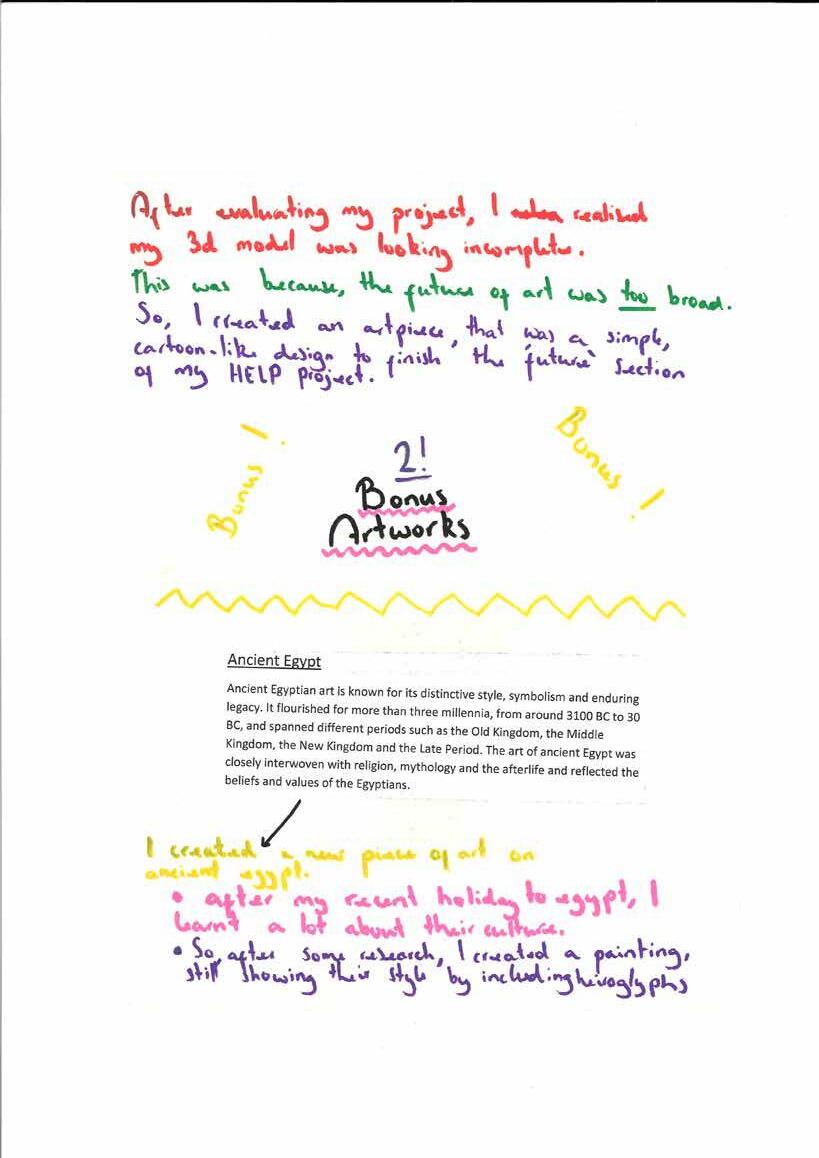 After evaluating my project, I realised
my 3d model was looking incomplete.
This was because, the future of art was too broad.
So, I created an artpiece, that was a simple,
cartoon-like design to finish the 'future' section
of my HELP project.
Bonus !
Bonus !
2!
Bonus
Artworks
Ancient Egypt
Ancient Egyptian art is known for its distinctive style, symbolism and enduring
legacy. It flourished for more than three millennia, from around 3100 BC to 30
BC, and spanned different periods such as the Old Kingdom, the Middle
Kingdom, the New Kingdom and the Late Period. The art of ancient Egypt was
closely interwoven with religion, mythology and the afterlife and reflected the
beliefs and values of the Egyptians.
I created a new piece of art on
ancient egypt.
• after my recent holiday to egypt, I
learnt a lot about their culture.
• So, after some research, I created a painting,
still showing their style by including hiroglyphs